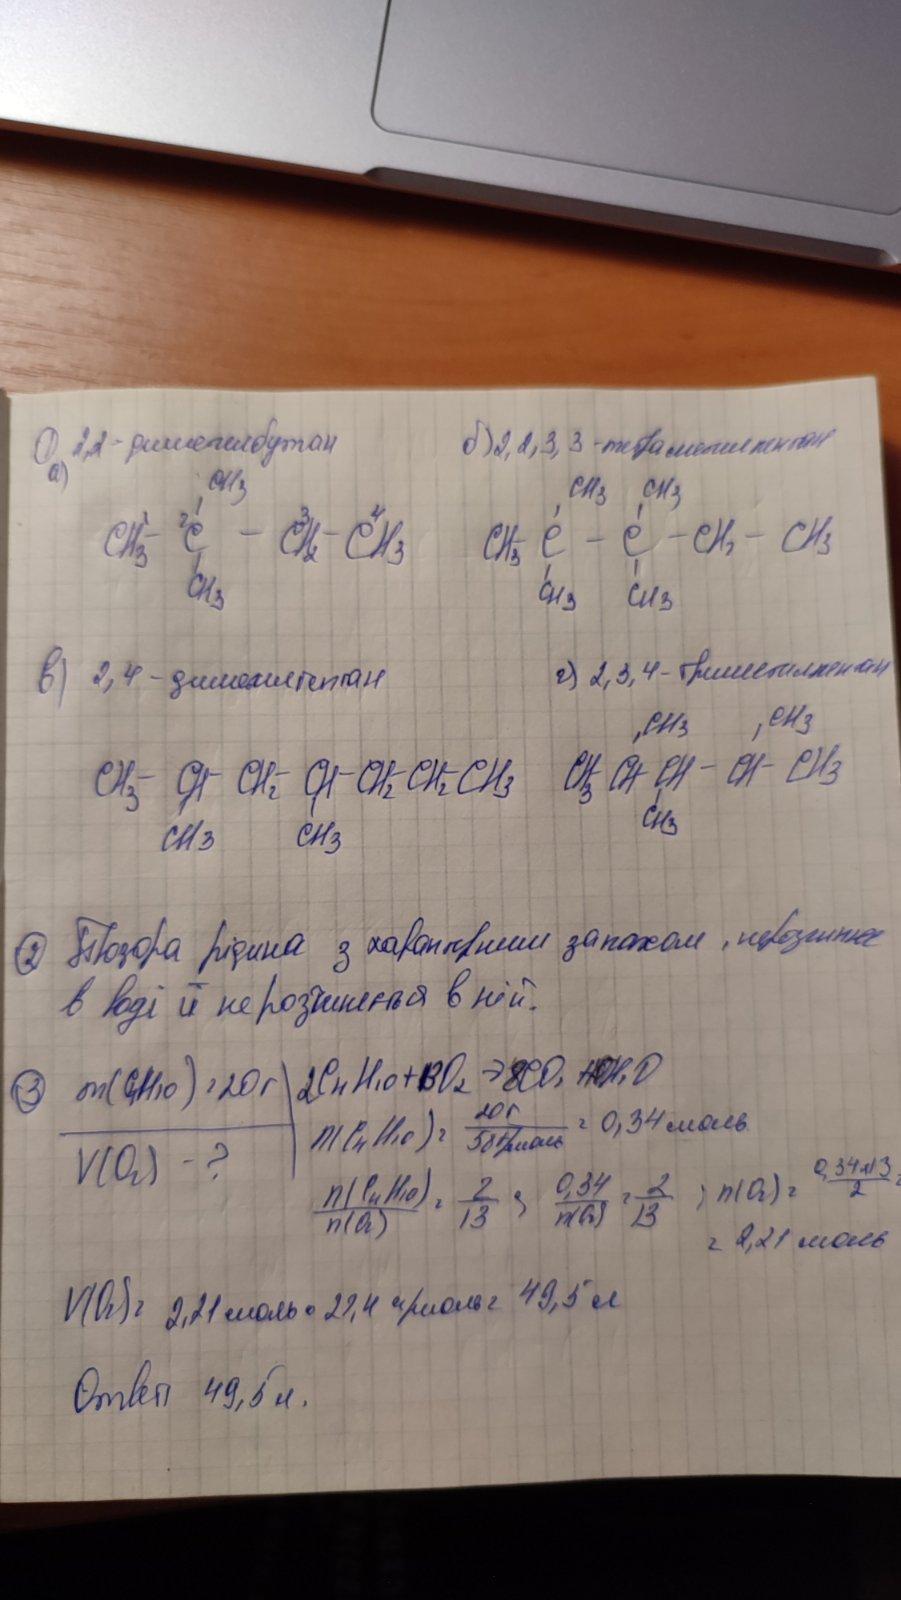 ① а) 2,2-диметилбутан
CH3
CH3 - C - CH2 - CH3
1 2 3 4
CH3
б) 2,2,3,3-тетраметилпентан
CH3 CH3
CH3 - C - C - CH2 - CH3
CH3 CH3
в) 2,4-диметилгептан
CH3 - CH - CH2 - CH - CH2 - CH2 - CH3
CH3 CH3
г) 2,3,4-триметилпентан
CH3 CH3
CH3 CH CH - CH - CH3
CH3
② Прозора рідина з характерним запахом,
в воді й не розчиняється в ній.
③ m(C4H10) = 20г
V(O2) - ?
2C4H10 + 13O2 → 8CO2 + 10H2O
n(C4H10) = 20г / 58г/моль = 0,34 моль
n(C4H10) / n(O2) = 2/13 ; 0,34 / n(O2) = 2/13 ; n(O2) = 0,34*13 / 2 =
= 2,21 моль
V(O2) = 2,21 моль • 22,4 л/моль = 49,5 л
Ответ 49,5 л.